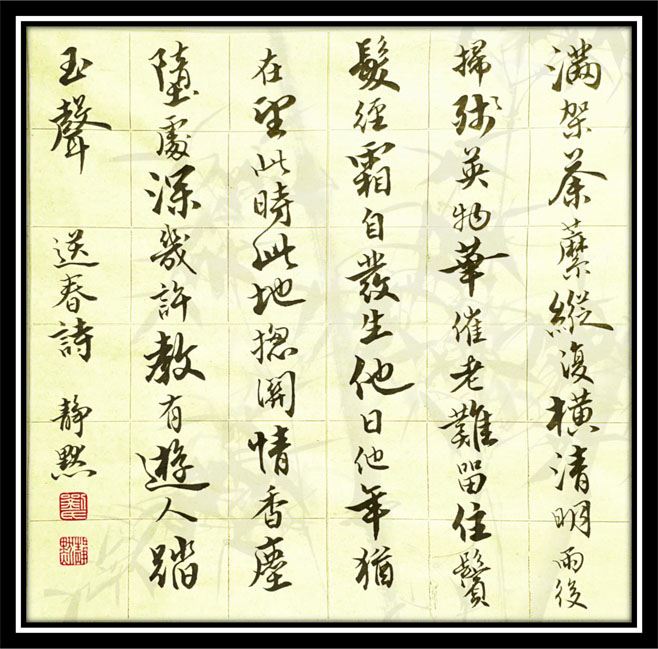 滿架荼蘼縱復橫清明雨後
掃殘英物華催老難留住鬢
髮經霜自發生他日他年猶
在望此時此地揔關情香塵
墮處深幾許教有遊人踏
玉聲 送春詩 靜默